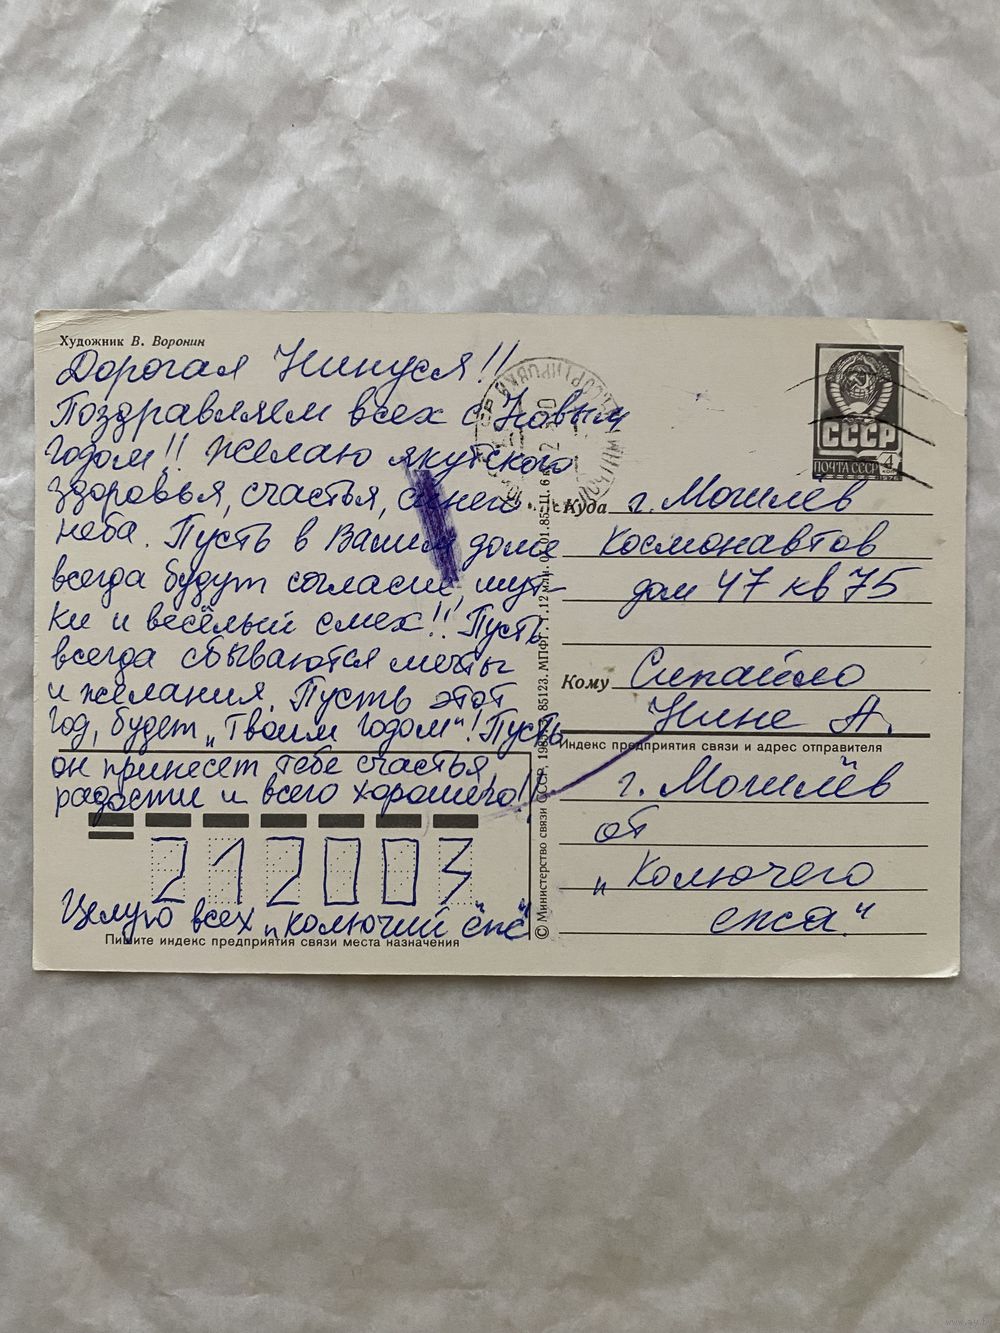 Художник В. Воронин
Дорогая Нинуся!!
Поздравляем всех с Новым
годом!! Желаю якутского
здоровья, счастья, синего
неба. Пусть в Вашем доме
всегда будут согласие, шут-
ки и весёлый смех!! Пусть
всегда сбываются мечты
и желания. Пусть этот
год, будет „Твоим годом“! Пусть
он принесет тебе счастья,
радости и всего хорошего!!
212003
Целую всех „колючий ёжё“
Пишите индекс предприятия связи места назначения
© Министерство связи СССР, 85123. МПФГ.
СССР
ПОЧТА СССР
4
Куда г. Могилёв
Космонавтов
дом 47 кв 75
Кому Сипайло
Нине А.
Индекс предприятия связи и адрес отправителя
г. Могилёв
от
„Колючего
ежа.“